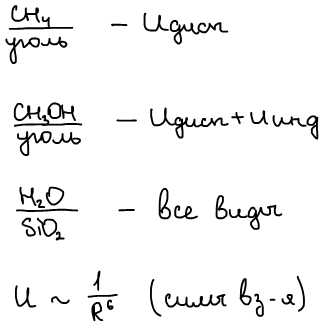 CH₄/уголь — Uдисп
CH₃OH/уголь — Uдисп + Uинд
H₂O/SiO₂ — все виды
U ~ 1/R⁶ (силы вз-я)